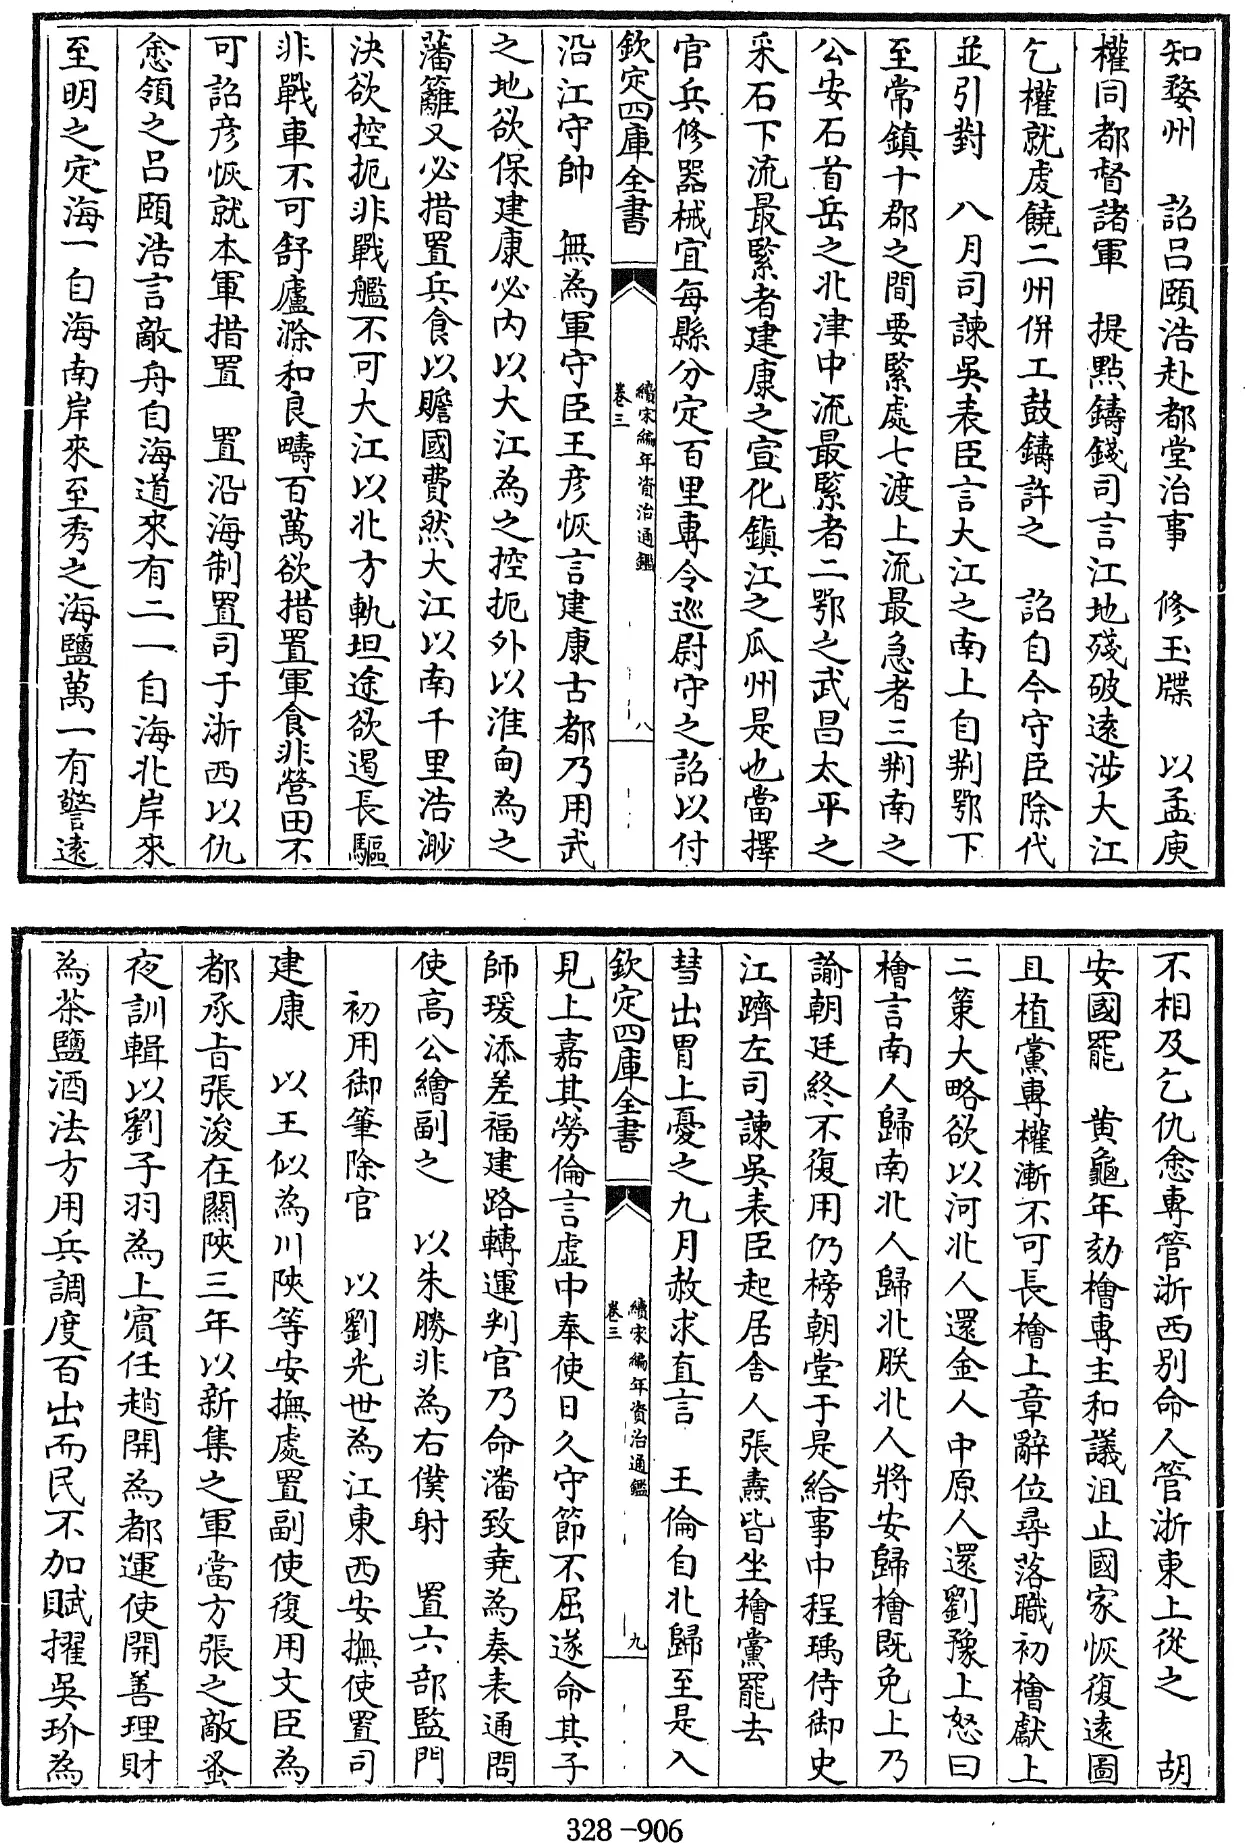 知婺州　詔呂頤浩赴都堂治事　修玉牒　以孟庾
權同都督諸軍　提點鑄錢司言江地殘破遠涉大江
乞權就虔饒二州併工鼓鑄許之　詔自今守臣除代
並引對　八月司諫吳表臣言大江之南上自荆鄂下
至常鎮十郡之間要緊處七渡上流最急者三荆南之
公安石首岳之北津中流最緊者二鄂之武昌太平之
采石下流最緊者建康之宣化鎮江之瓜州是也當擇
官兵修器械宜每縣分定百里專令巡尉守之詔以付
欽定四庫全書
續宋編年資治通鑑
卷三
八
沿江守帥　無為軍守臣王彥恢言建康古都乃用武
之地欲保建康必内以大江為之控扼外以淮甸為之
藩籬又必措置兵食以贍國費然大江以南千里浩渺
決欲控扼非戰艦不可大江以北方軌坦途欲遏長驅
非戰車不可舒廬滁和良疇百萬欲措置軍食非營田不
可詔彥恢就本軍措置　置沿海制置司于浙西以仇
悆領之呂頤浩言敵舟自海道來有二一自海北岸來
至明之定海一自海南岸來至秀之海鹽萬一有警遠
不相及乞仇悆專管浙西别命人管浙東上從之　胡
安國罷　黄龜年劾檜專主和議沮止國家恢復遠圖
且植黨專權漸不可長檜上章辭位尋落職初檜獻上
二策大略欲以河北人還金人中原人還劉豫上怒曰
檜言南人歸南北人歸北朕北人將安歸檜既免上乃
諭朝廷終不復用仍榜朝堂于是給事中程瑀侍御史
江躋左司諫吳表臣起居舍人張燾皆坐檜黨罷去
彗出胃上憂之九月赦求直言　王倫自北歸至是入
欽定四庫全書
續宋編年資治通鑑
卷三
九
見上嘉其勞倫言虛中奉使日久守節不屈遂命其子
師瑗添差福建路轉運判官乃命潘致堯為奏表通問
使高公繪副之　以朱勝非為右僕射　置六部監門
初用御筆除官　以劉光世為江東西安撫使置司
建康　以王似為川陝等安撫處置副使復用文臣為
都承旨張浚在關陝三年以新集之軍當方張之敵蚤
夜訓輯以劉子羽為上賓任趙開為都運使開善理財
為茶鹽酒法方用兵調度百出而民不加賦擢吳玠為
328-906